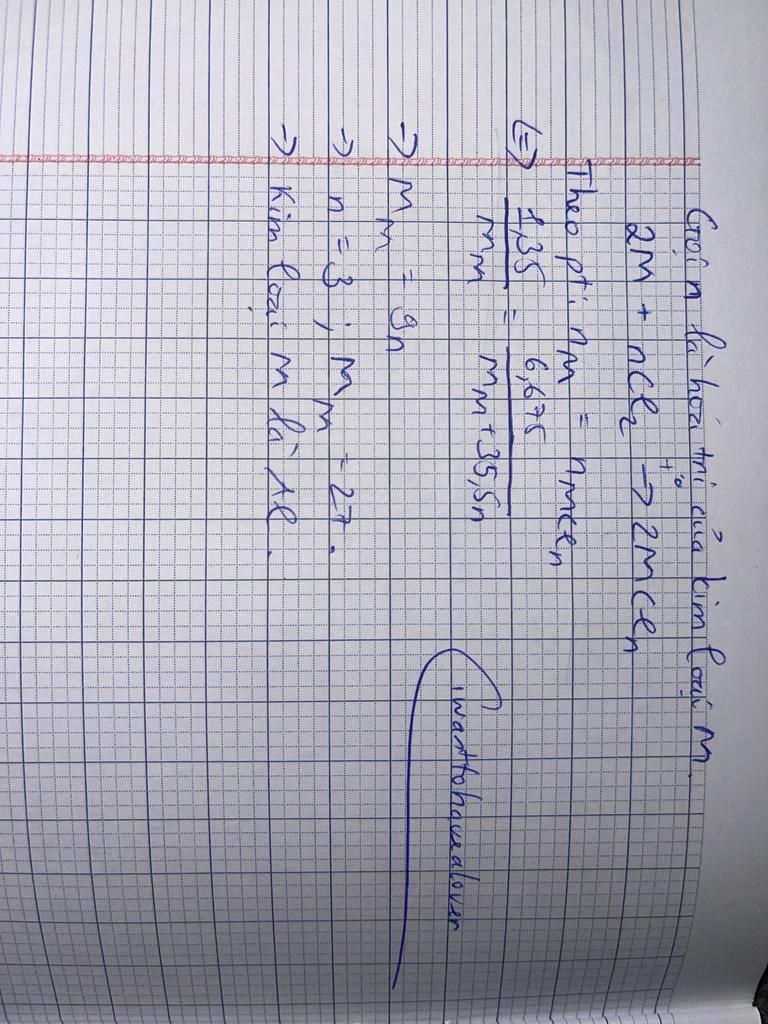 Gọi n là hóa trị của kim loại M.
2M + nCl₂ →t° 2MClₙ
Theo pt: nM = nMClₙ
(=> 1,35/MM = 6,675/(MM + 35,5n)
→ MM = 9n
→ n = 3 ; MM = 27.
→ Kim loại M là Al.
iwanttohavealover